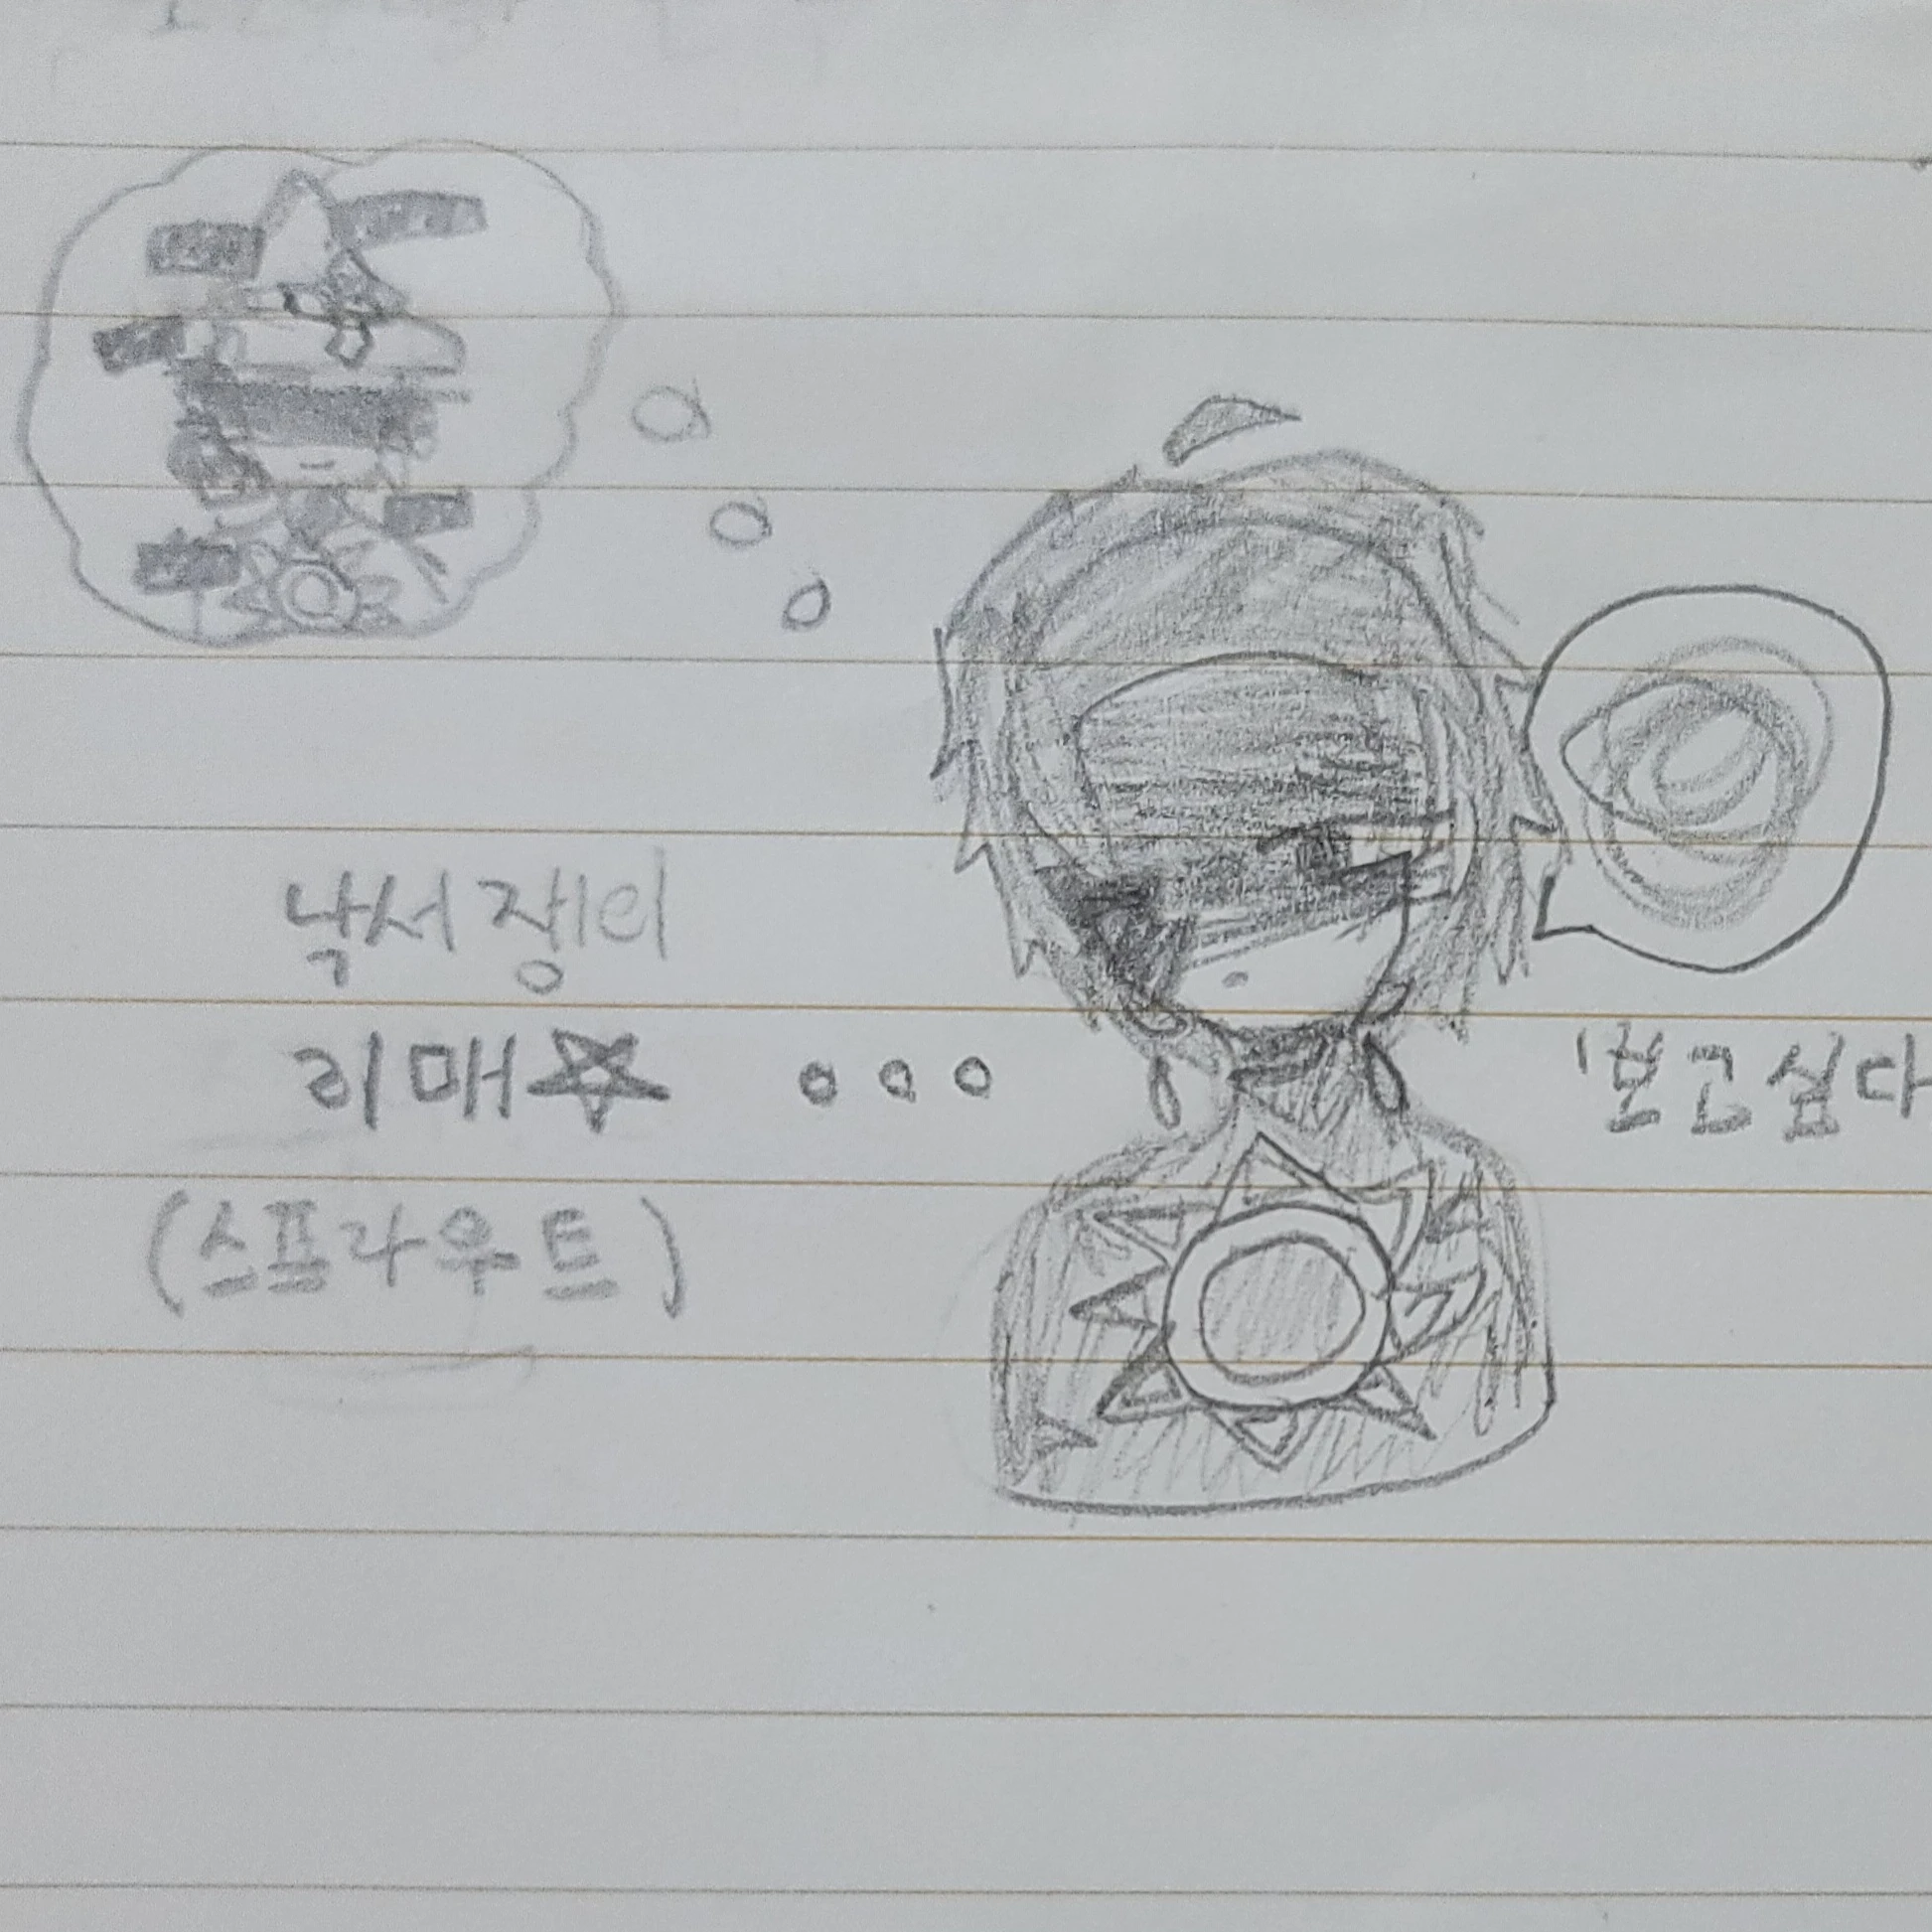 낙서장이
리매☆
(스프라우트)
...
'보고싶다